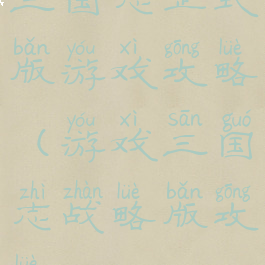 三国志正式
bǎn yóu xì gōng lüè
版游戏攻略
yóu xì sān guó
（游戏三国
zhì zhàn lüè bǎn gōng
志战略版攻
lüè